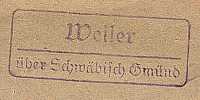 Weiler
über Schwäbisch Gmünd